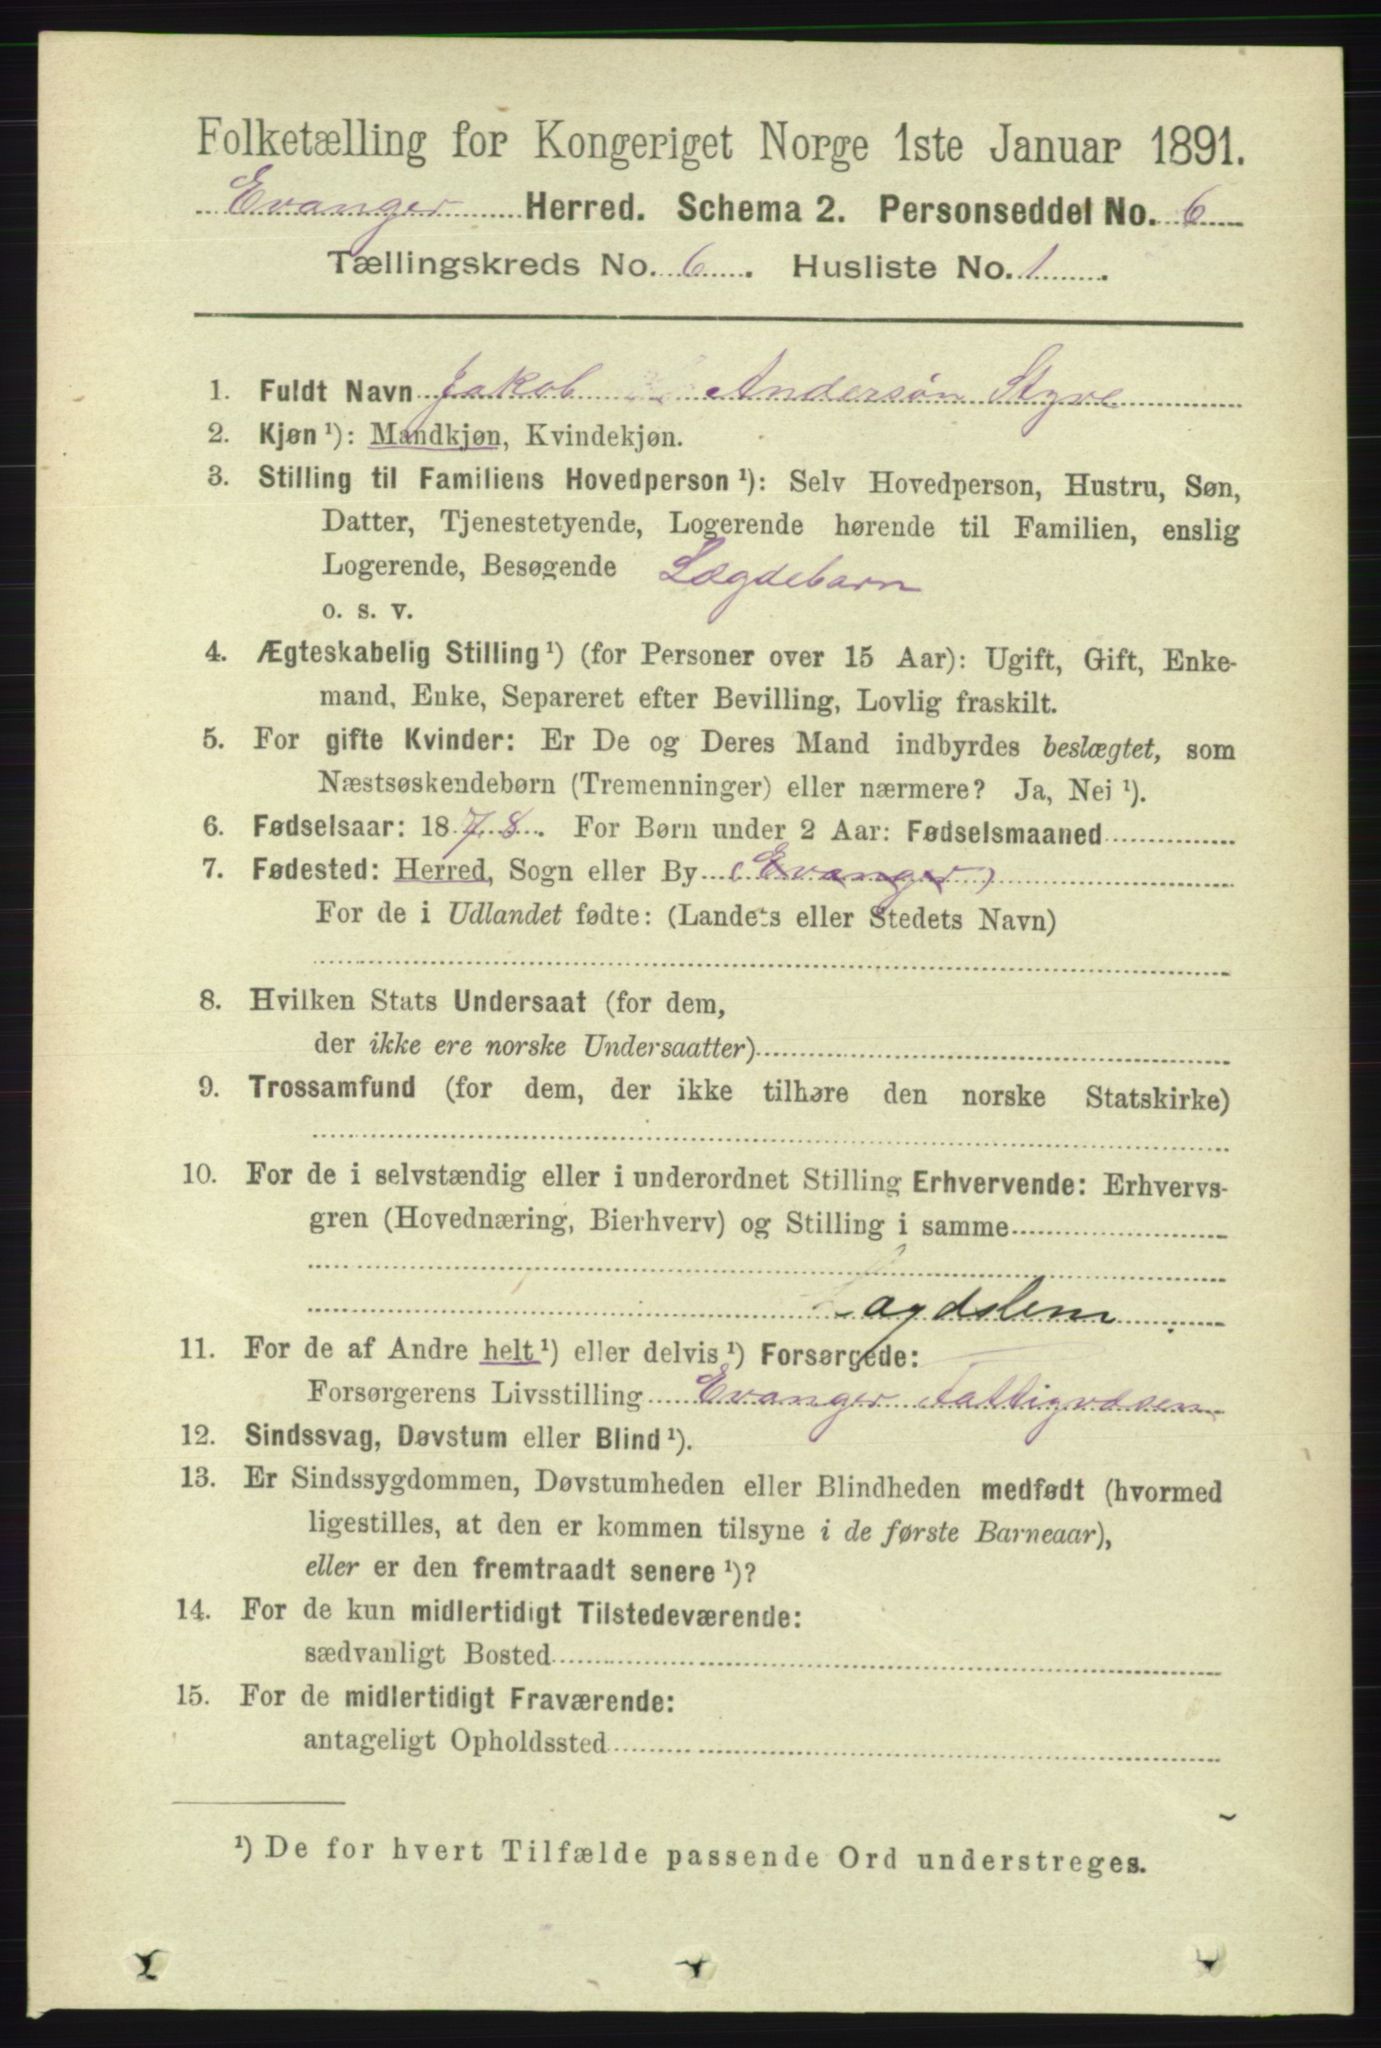 Folketælling for Kongeriget Norge 1ste Januar 1891.
Evanger Herred. Schema 2. Personseddel No. 6
Tællingskreds No. 6. Husliste No. 1.
1. Fuldt Navn Jakob Andersøn Styve
2. Kjøn ¹): Mandkjøn, Kvindekjøn.
3. Stilling til Familiens Hovedperson ¹): Selv Hovedperson, Hustru, Søn,
Datter, Tjenestetyende, Logerende hørende til Familien, enslig
Logerende, Besøgende Lægdebarn
o. s. v.
4. Ægteskabelig Stilling ¹) (for Personer over 15 Aar): Ugift, Gift, Enke-
mand, Enke, Separeret efter Bevilling, Lovlig fraskilt.
5. For gifte Kvinder: Er De og Deres Mand indbyrdes beslægtet, som
Næstsøskendebørn (Tremenninger) eller nærmere? Ja, Nei ¹).
6. Fødselsaar: 1878. For Børn under 2 Aar: Fødselsmaaned
7. Fødested: Herred, Sogn eller By (Evanger)
For de i Udlandet fødte: (Landets eller Stedets Navn)
8. Hvilken Stats Undersaat (for dem,
der ikke ere norske Undersaatter)
9. Trossamfund (for dem, der ikke tilhøre den norske Statskirke)
10. For de i selvstændig eller i underordnet Stilling Erhvervende: Erhvervs-
gren (Hovednæring, Bierhverv) og Stilling i samme
Lægdslem
11. For de af Andre helt ¹) eller delvis ¹) Forsørgede:
Forsørgerens Livsstilling Evanger Fattigvæsen
12. Sindssvag, Døvstum eller Blind ¹).
13. Er Sindssygdommen, Døvstumheden eller Blindheden medfødt (hvormed
ligestilles, at den er kommen tilsyne i de første Barneaar),
eller er den fremtraadt senere ¹)?
14. For de kun midlertidigt Tilstedeværende:
sædvanligt Bosted
15. For de midlertidigt Fraværende:
antageligt Opholdssted
¹) De for hvert Tilfælde passende Ord understreges.